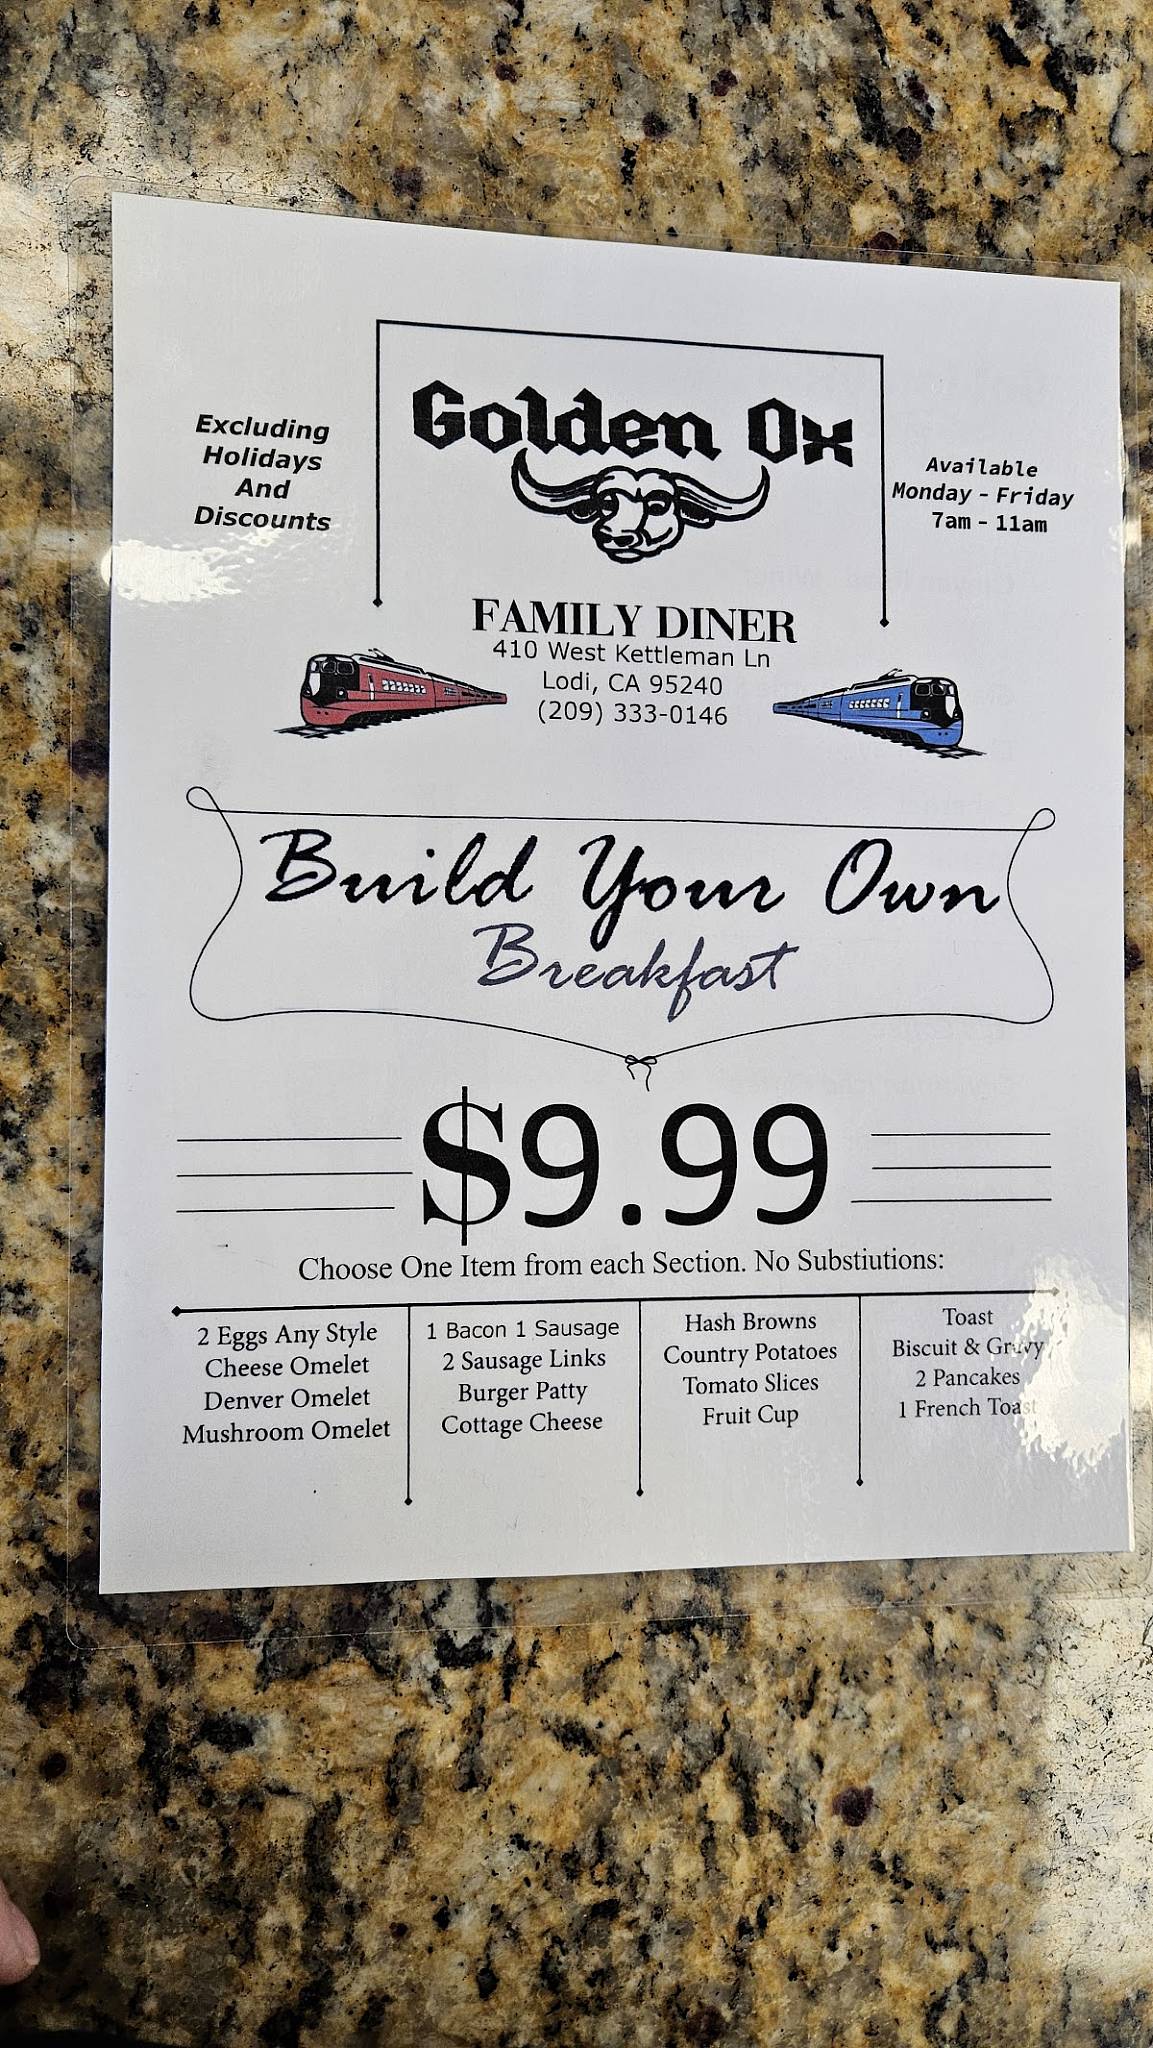 Excluding
Holidays
And
Discounts
Golden Ox
Available
Monday - Friday
7am - 11am
FAMILY DINER
410 West Kettleman Ln
Lodi, CA 95240
(209) 333-0146
Build Your Own
Breakfast
$9.99
Choose One Item from each Section. No Substiutions:
2 Eggs Any Style
Cheese Omelet
Denver Omelet
Mushroom Omelet
1 Bacon 1 Sausage
2 Sausage Links
Burger Patty
Cottage Cheese
Hash Browns
Country Potatoes
Tomato Slices
Fruit Cup
Toast
Biscuit & Gravy
2 Pancakes
1 French Toast